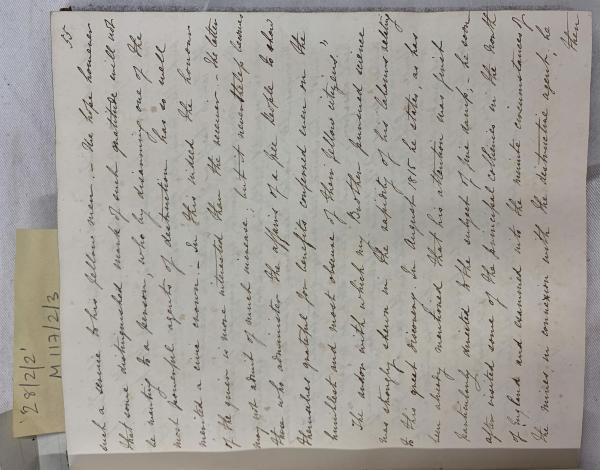 55
such a service to his fellow men — The hope however
that some distinguished mark of such gratitude will not
be wanting to a person, who by disarming one of the
most powerful agents of destruction has so well
merited a civic crown — In this indeed the honour
of the giver is more interested than the receiver. — the latter
may not admit of much increase; but it nevertheless becomes
those who administer the affairs of a free people to show
themselves grateful for benefits conferred even on the
humblest and most obscure of their fellow citizens."
The ardor with which my Brother pursued science
was strongly shewn in the rapidity of his labours relating
to this great discovery. In August 1815 he states, as has
been already mentioned that his attention was first
particularly directed to the subject of fire damp, — he soon
after visited some of the principal collieries in the North
of England and examined into the minute circumstances of
the mines, in connexion with the destructive agent; he
then
28/2/2'
M 117/2/3